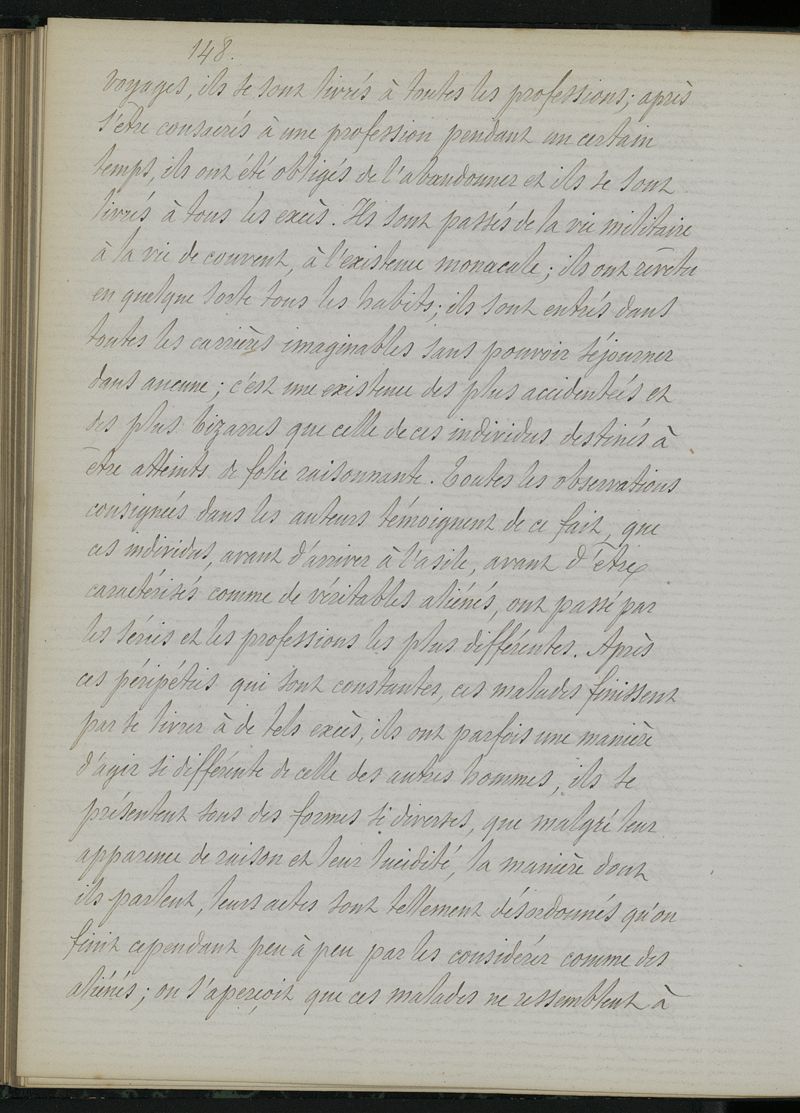 148.
voyages, ils se sont livrés à toutes les professions; après
s'être consacrés à une profession pendant un certain
temps, ils ont été obligés de l'abandonner et ils se sont
livrés à tous les excès. Ils sont passés de la vie militaire
à la vie de couvent, à l'existence monacale; ils ont revêtu
en quelque sorte tous les habits; ils sont entrés dans
toutes les carrières imaginables sans pouvoir séjourner
dans aucune; c'est une existence des plus accidentées et
des plus bizarres que celle de ces individus destinés à
être atteints de folie raisonnante. Toutes les observations
consignées dans les auteurs témoignent de ce fait, que
ces individus, avant d'arriver à l'asile, avant d'être
caractérisés comme de véritables aliénés, ont passé par
les séries et les professions les plus différentes. Après
ces péripéties qui sont constantes, ces malades finissent
par se livrer à de tels excès, ils ont parfois une manière
d'agir si différente de celle des autres hommes, ils se
présentent sous des formes si diverses, que malgré leur
apparence de raison et leur lucidité, la manière dont
ils parlent, leurs actes sont tellement désordonnés qu'on
finit cependant peu à peu par les considérer comme des
aliénés; on s'aperçoit que ces malades ne ressemblent à